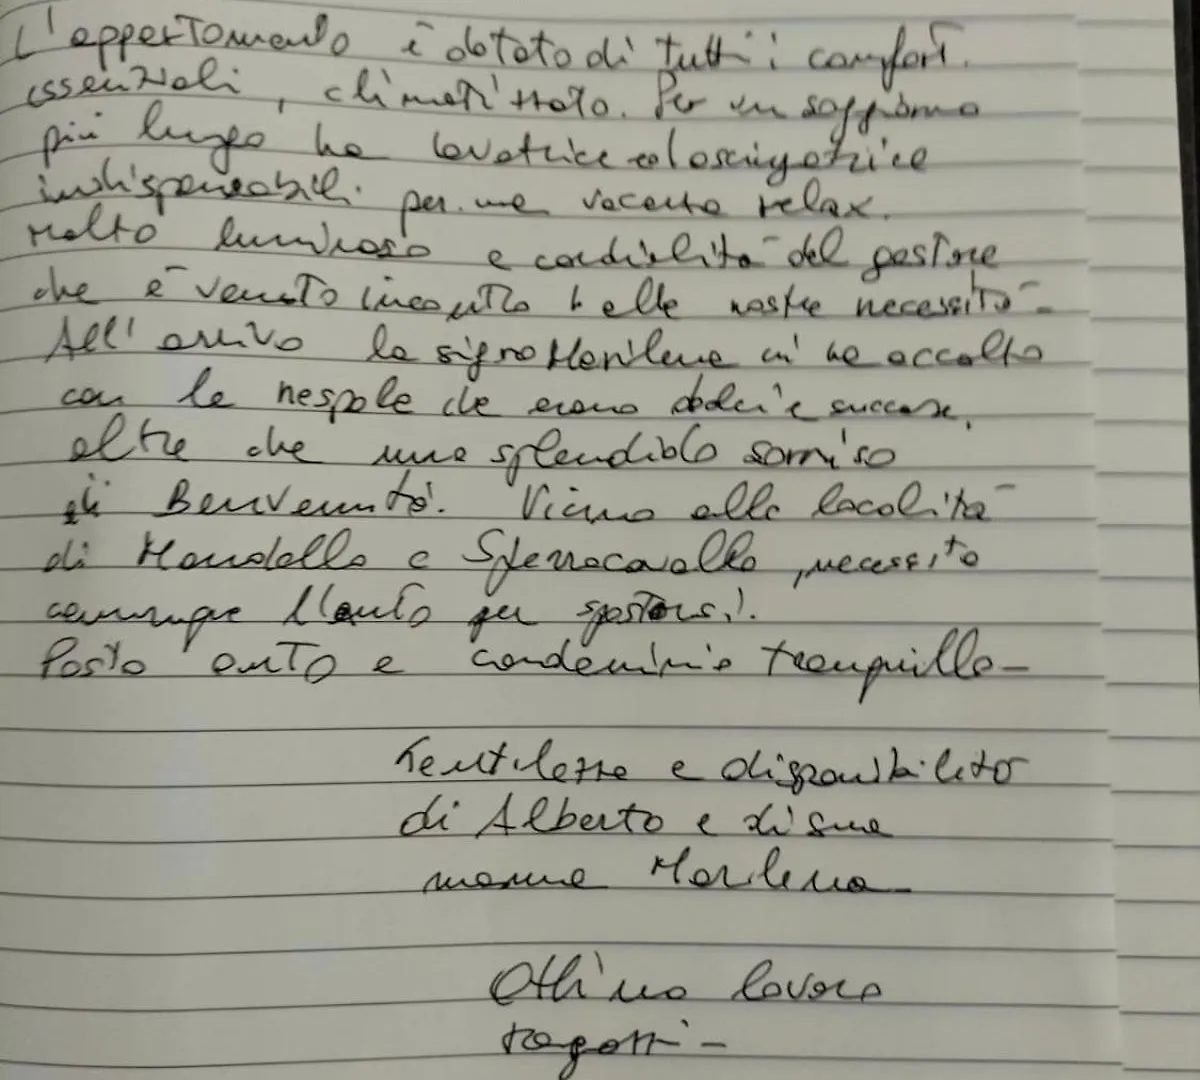 L'appartamento è dotato di tutti i comfort.
essenziali, climatizzato. Per un soggiorno
più lungo ha lavatrice ed asciugatrice
indispensabili per una vacanza relax.
Molto luminoso e cordialità del gestore
che è venuto incontro alle nostre necessità-
All'arrivo la sig.ra Marilena ci ha accolto
con le nespole che erano dolci e succose,
oltre che una splendido sorriso
di Benvenuto. Vicino alle località
di Mondello e Sferracavallo, necessita
comunque l'auto per spostarsi.
Posto auto e condominio tranquillo-
Gentilezza e disponibilità
di Alberto e di sua
mamma Marilena
Ottimo lavoro
ragazzi-